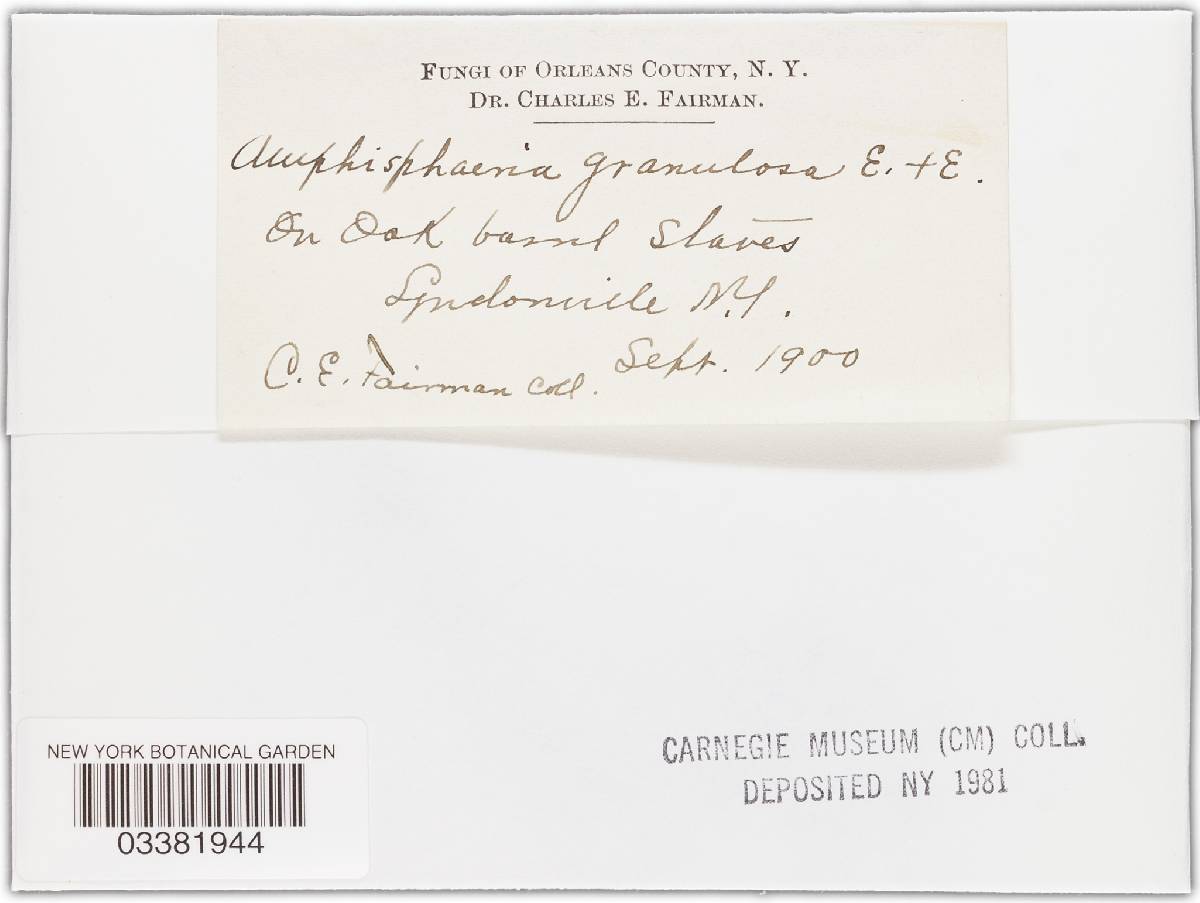 FUNGI OF ORLEANS COUNTY, N. Y.
DR. CHARLES E. FAIRMAN.
Amphisphaeria granulosa E. + E.
On Oak barrel Staves
Lyndonville N.Y.
C. E. Fairman Coll. Sept. 1900
NEW YORK BOTANICAL GARDEN
03381944
CARNEGIE MUSEUM (CM) COLL.
DEPOSITED NY 1981